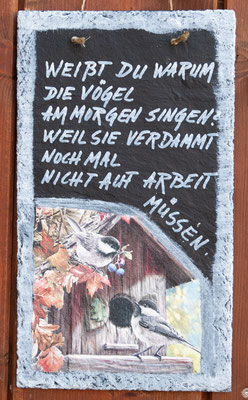 WEIßT DU WARUM
DIE VÖGEL
AM MORGEN SINGEN?
WEIL SIE VERDAMMT
NOCH MAL
NICHT AUF ARBEIT
MÜSSEN.